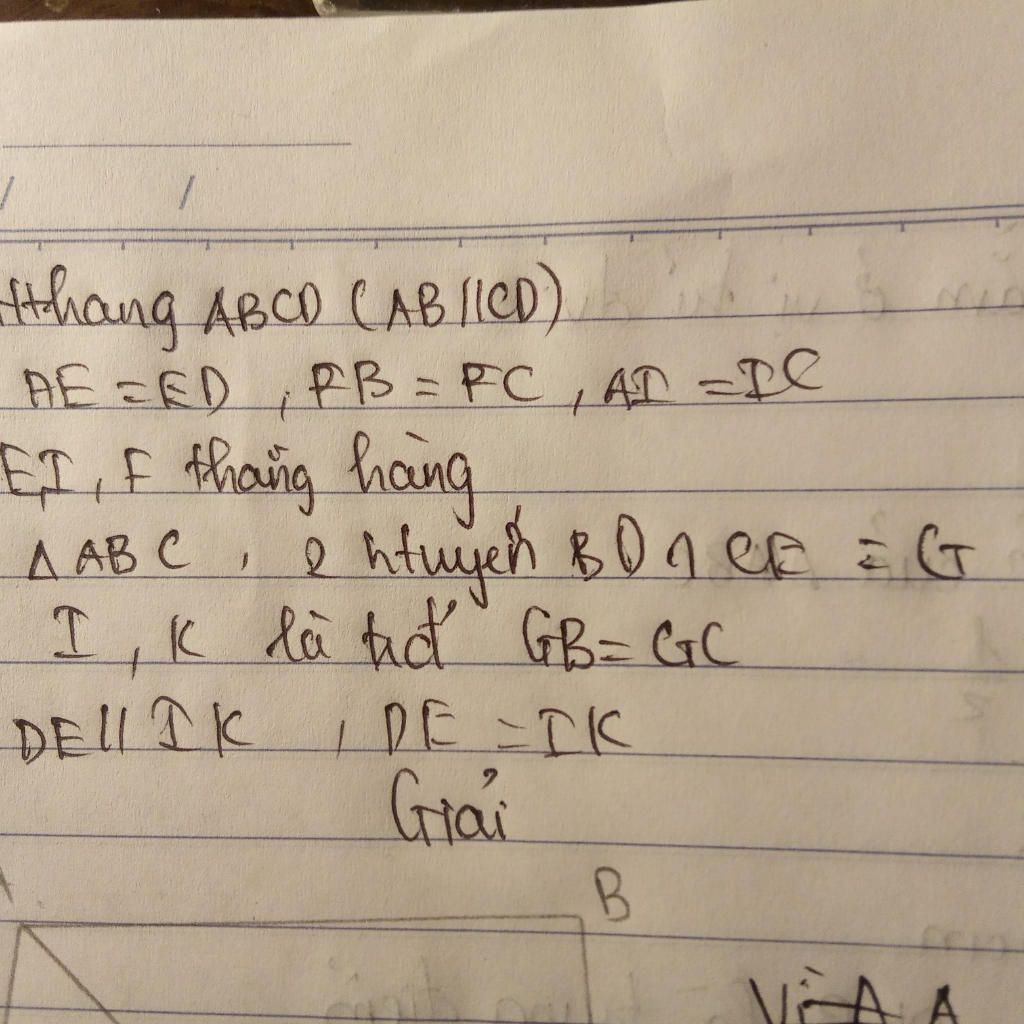 hthang ABCD (AB//CD)
AE = ED , FB = FC , AI = IC
E,I, F thẳng hàng
Δ ABC , 2 htuyến BD ∩ CE = G
I , K là tđ GB = GC
DE // IK , DE = IK
Giải
B
Vì A A